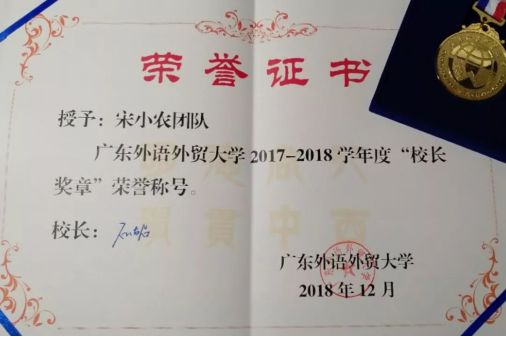 荣誉证书
授予：宋小农团队
广东外语外贸大学2017-2018学年度“校长
奖章”荣誉称号。
校长：
广东外语外贸大学
2018年12月